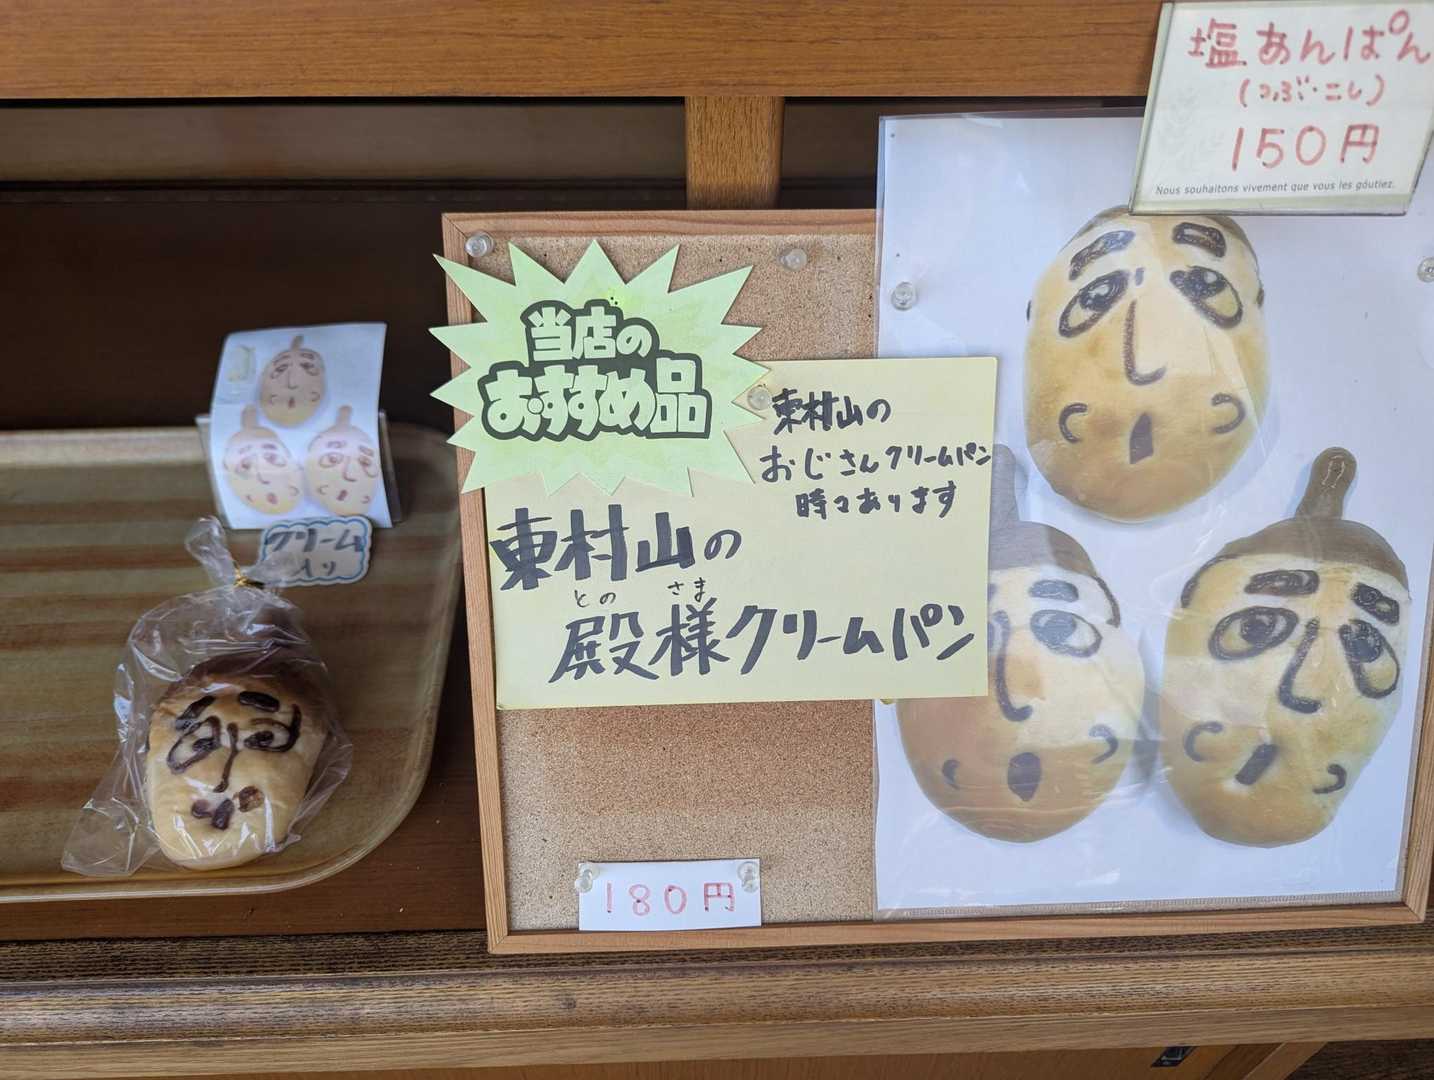 塩あんぱん
(つぶ・こし)
150円
Nous souhaitons vivement que vous les goûtiez.
当店の
おすすめ品
東村山の
おじさんクリームパン
時々あります
東村山の
との さま
殿様クリームパン
クリーム
入り
180円